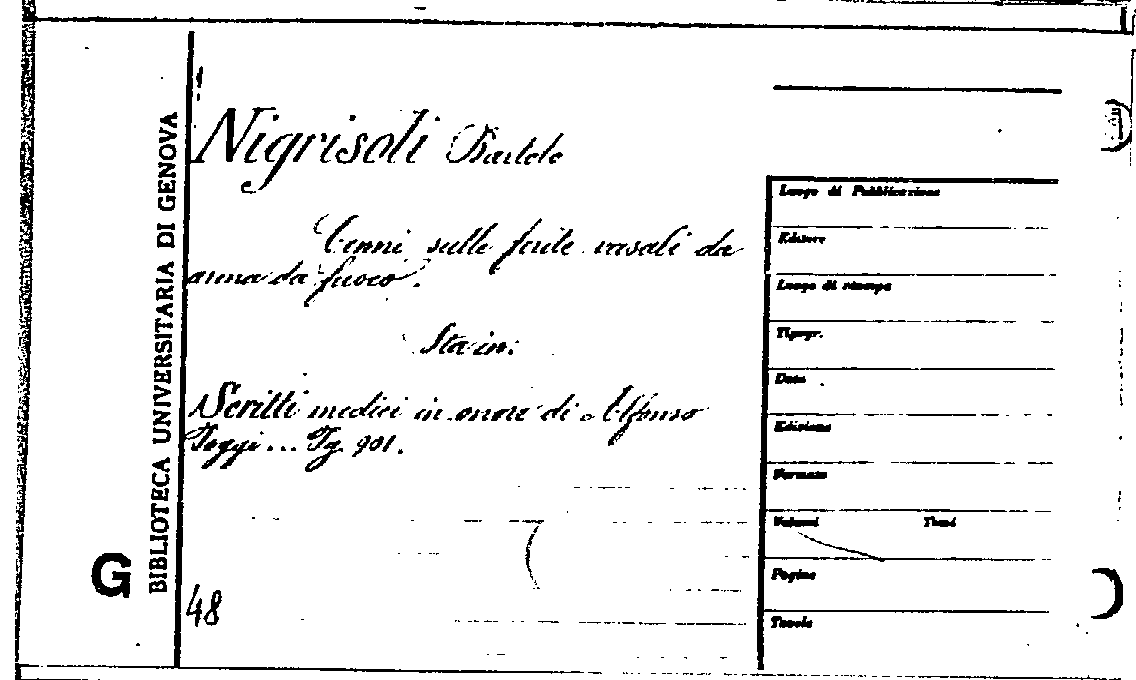 BIBLIOTECA UNIVERSITARIA DI GENOVA
G
Nigrisoli Bartolo
Cenni sulle ferite vasali da
arma da fuoco.
Sta in:
Scritti medici in onore di Alfonso
Poggi... Pg. 901.
48
Luogo di Pubblicazione
Editore
Luogo di stampa
Tipogr.
Data
Edizione
Formato
Volumi Tomi
Pagine
Tavole